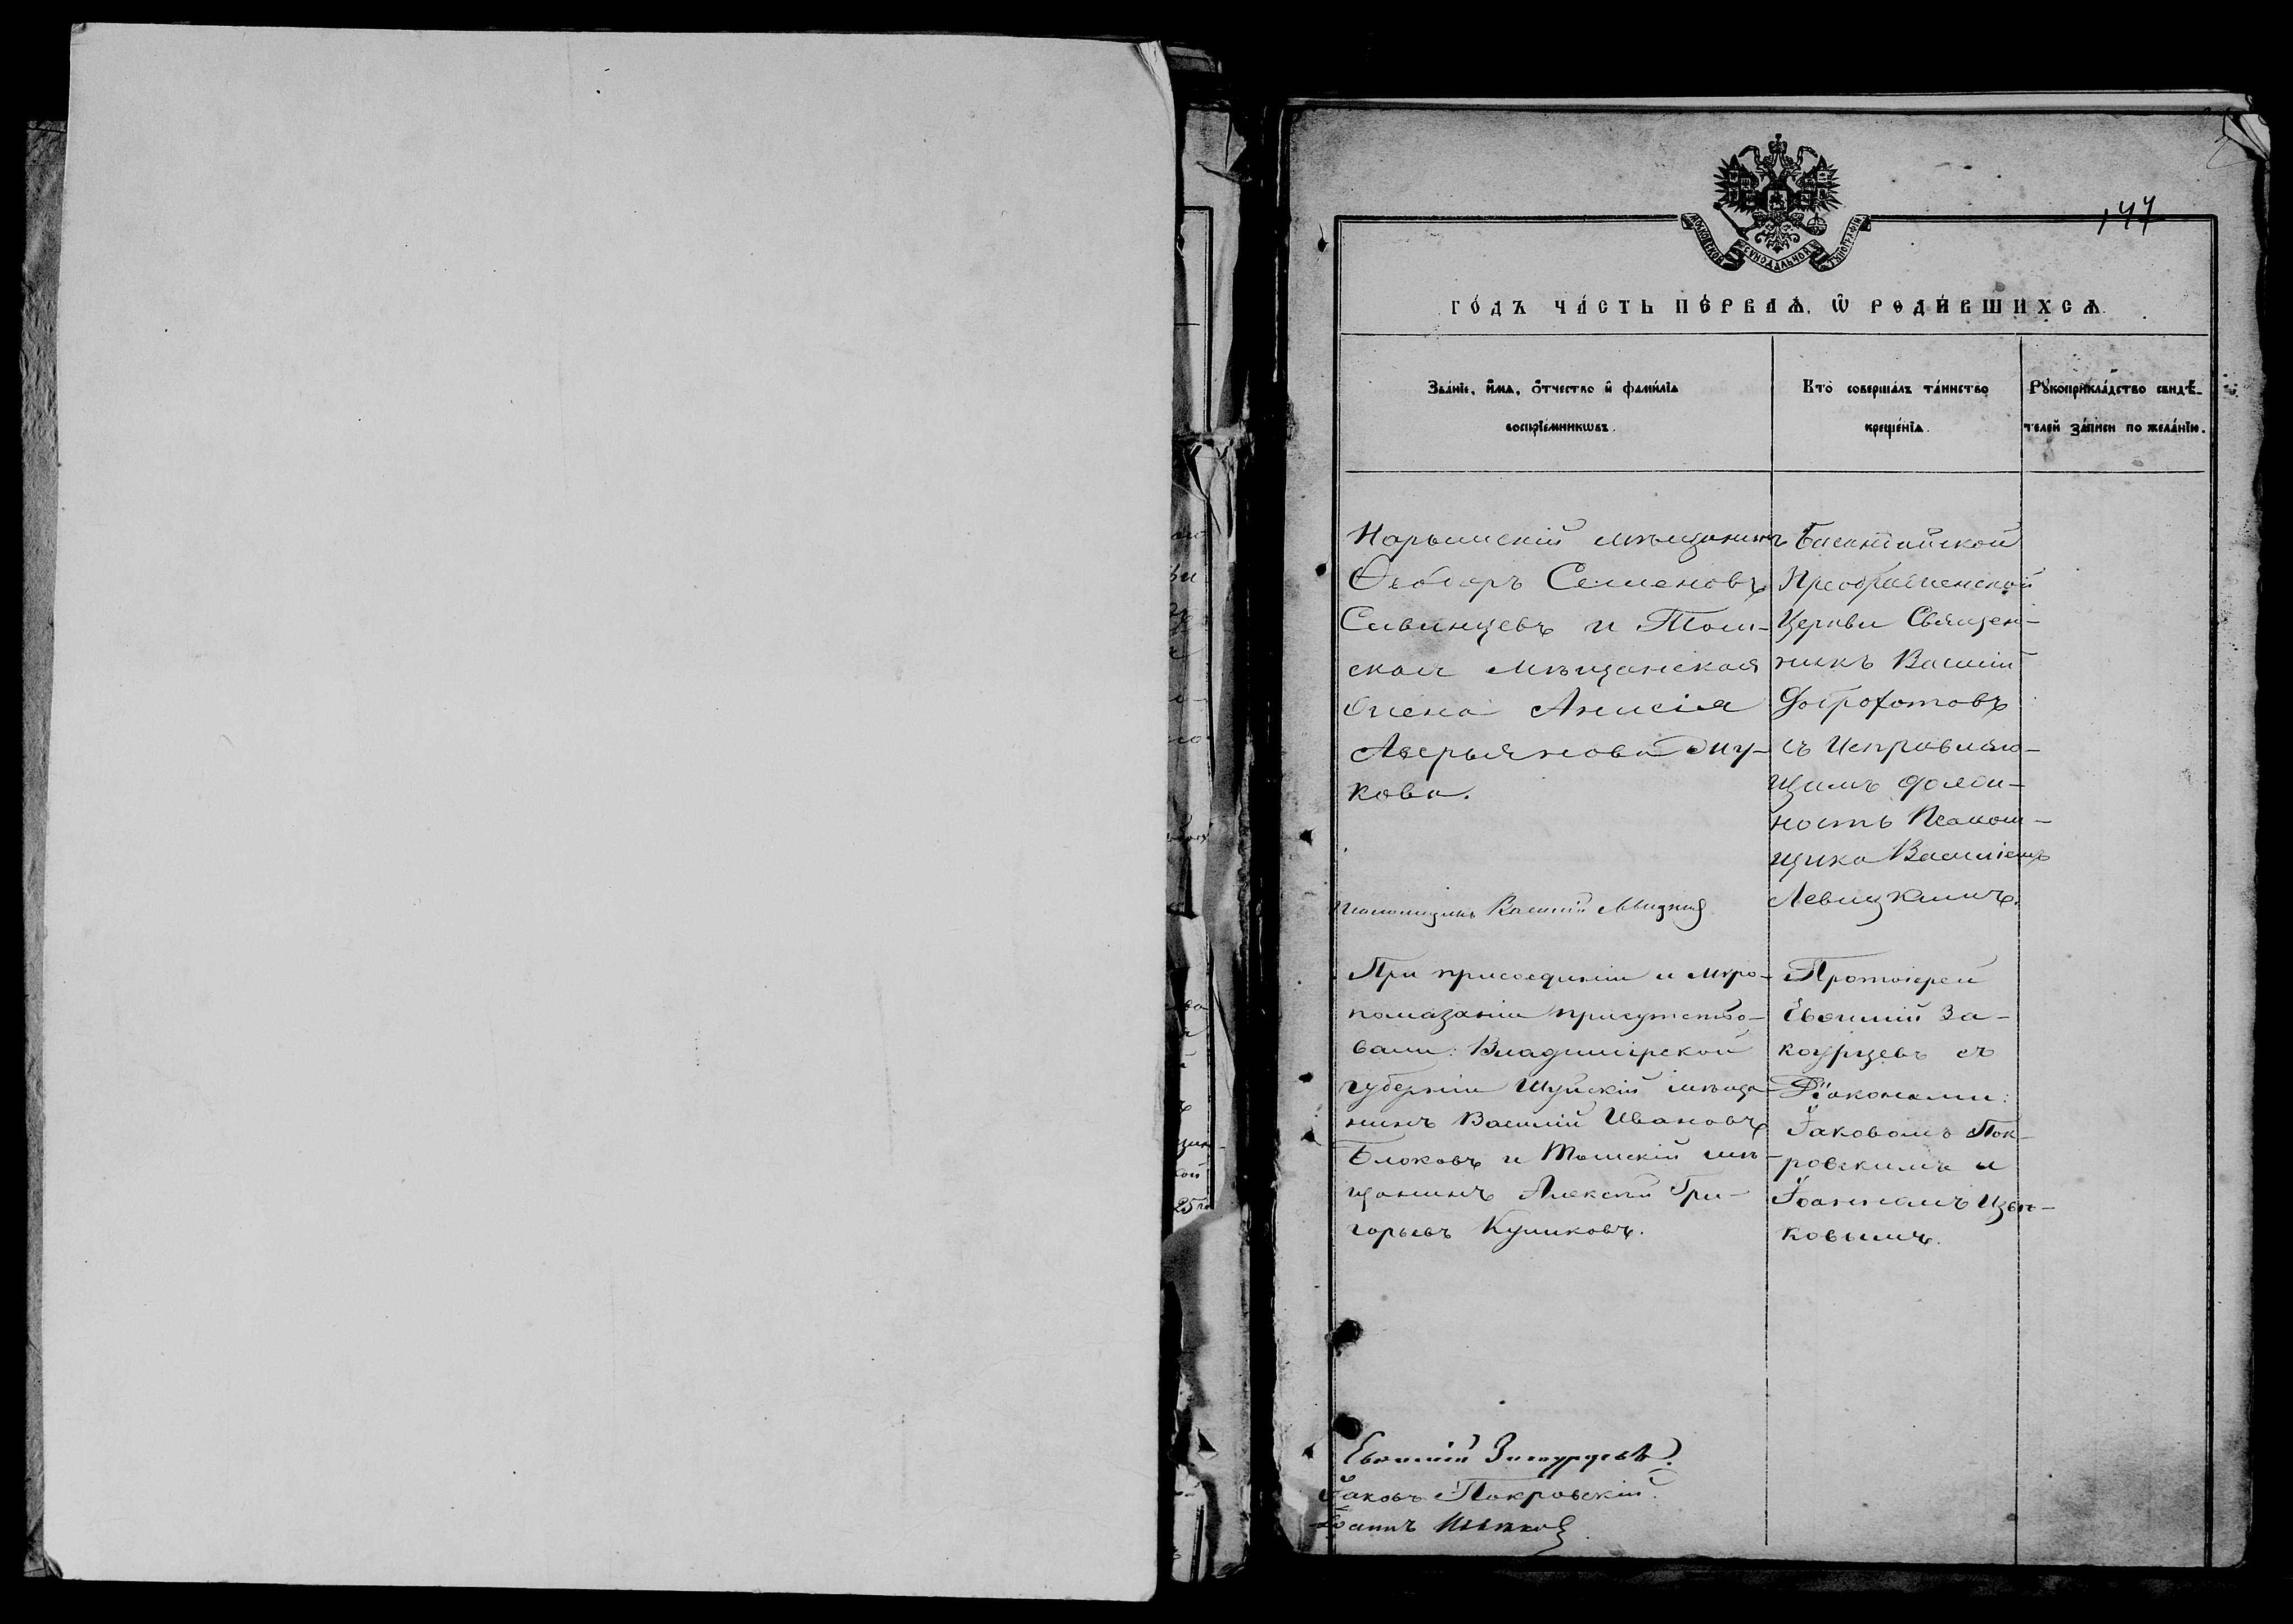 144
МОСКОВСКОЙ СУНОДАЛЬНОЙ ТУПОГРАФІИ
ГО́ДЪ ЧА́СТЬ ПЕ́РВАѦ, Ѡ҆ РОДИ́ВШИХСѦ.
Зва́нїе, и҆́мѧ, ѻ҆́тчество и҆ фами́лїѧ
воспрїе́мникѡвъ.
Кто̀ соверша́лъ та́инство
креще́нїѧ.
Рꙋкоприкла́дство свидѣ́-
телей за́писи по жела́нїю.
Нарымскій мѣщанинъ
Ѳеодоръ Семеновъ
Сивинцевъ и Том-
ская мѣщанская
жена Анисія
Аверьянова
кова.
Псаломщикъ Василій
Преображенской
Церкви Священ-
никъ Василій
Доброхотовъ
съ Исправляю-
щимъ долж-
ность Псалом-
щика Василіемъ
Левицкимъ.
При присоединеніи и мѵро-
помазаніи присутство-
вали: Владимірской
губерніи Шуйскій мѣща-
нинъ Василій Ивановъ
Блоковъ и Томскій мѣ-
щанинъ Алексѣй Гри-
горьевъ Куликовъ.
Протоіерей
Евѳимій За-
коурцевъ съ
Діаконами:
Іаковомъ Пок-
ровскимъ и
Іоанномъ Извѣ-
ковымъ.
Евѳимій Закоурцевъ.
Іаковъ Покровскій.
Іоаннъ